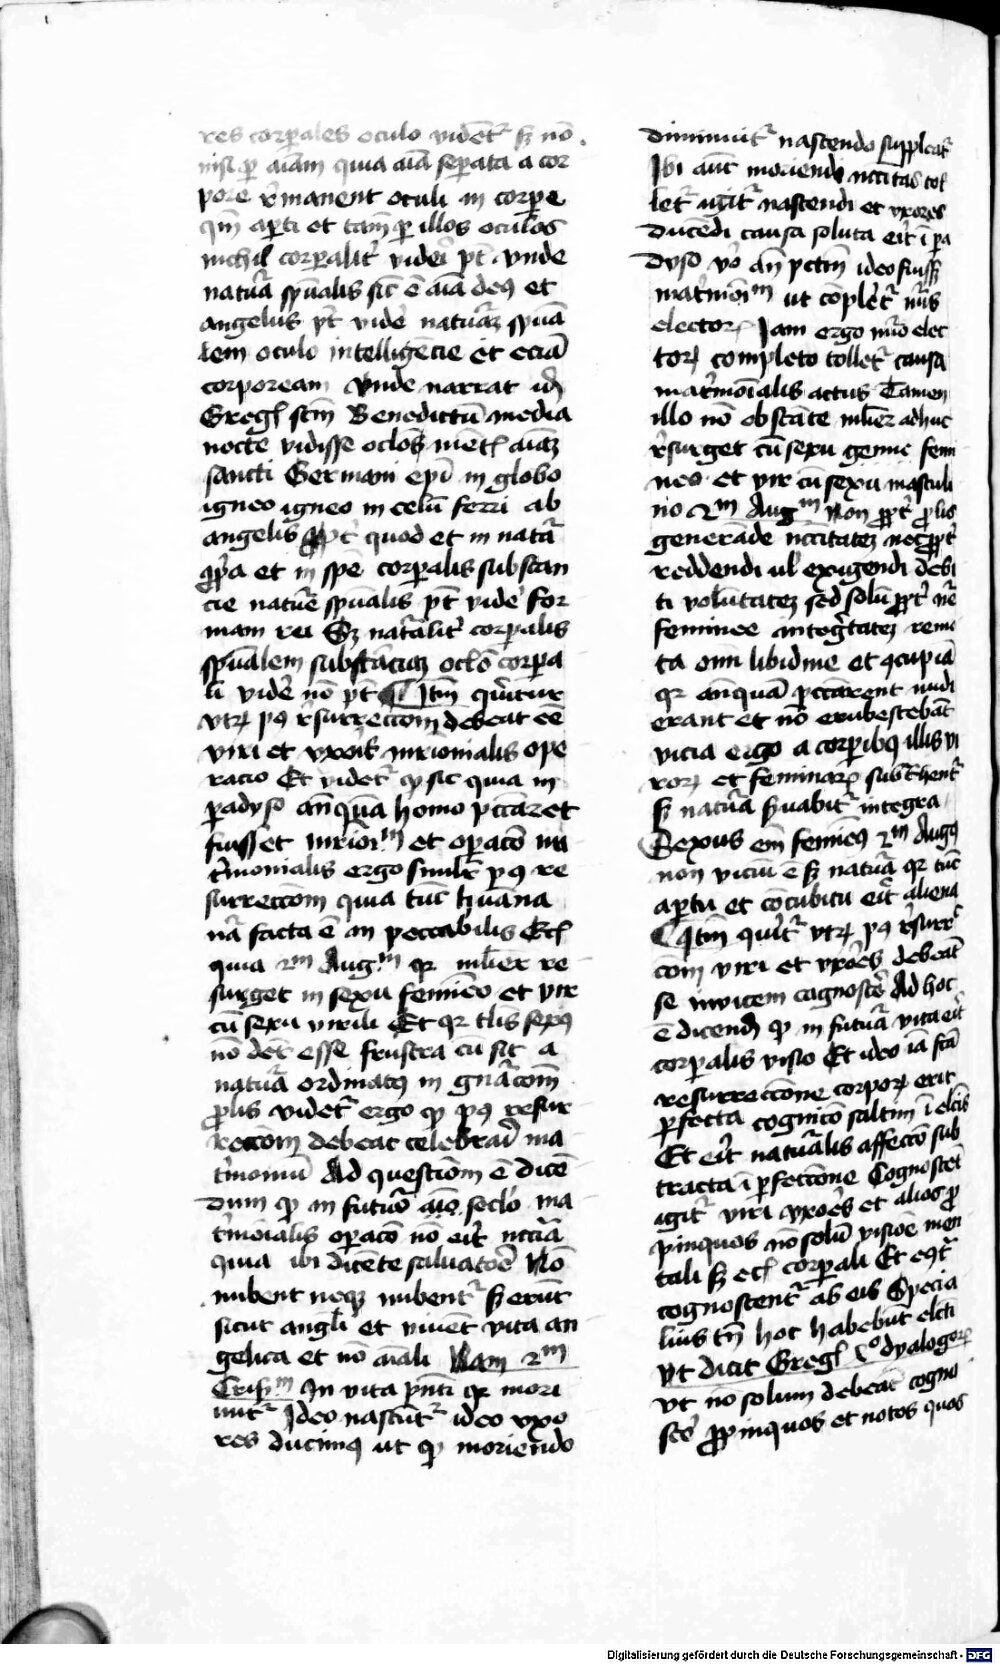 res corꝑales oculo vidēt᷑ sꝫ nō
nisi ꝑ aīam quia aīa seꝑata a cor
pore r̄manent oculi in corꝑe
qm̄ aꝑti et tam̄ ꝑ illos oculos
nichil corꝑalit᷑ videri pt̄ vnde
natu᷑a spūalis sic̄ ē aīa deꝰ et
angelus pt̄ vide᷑ natu᷑aꝫ spūa
lem oculo intelligēcie et eciā
corpoream vnde narrat id᷑
Greg᷑ sctm̄ Benedictū media
nocte vidisse oc̄los mēt᷑ aīaꝫ
sancti Germani ep̄i in globo
igneo igneo in celū ferri ab
angelis ꝓpt᷑ quod et in natā
ꝓp̄a et in spē corꝑalis substan
cie natur̄e spūalis pt̄ vide᷑ for
mam rei Sꝫ natālit᷑ corꝑalis
spūalem substātiaꝫ oc̄lō corꝑa
li vide᷑ nō pt̄ ¶ Itm̄ querit᷑ur
vtrꝝ pꝰ r̄surreccōm debeat eē
viri et vxoris mr̄ionialis ope
racio Et videt᷑ qꝫ sic quia in
ꝑadyso an̄quā homo pccāret
fuisset mr̄ioniᵐ et oꝑacō ma
t᷑monialis ergo simil᷑r pꝰ re
surreccōm quia tūc hūana
nā facta ē in peccabilis Etc̄
quia 2ᵐ Augᵐ qꝛ mlīer re
surget in sexu femīeo et vir
cū sexu virili Et qꝛ tl̄is sexꝰ
nō det̄ esse frustra cū sit a
natu᷑a ordinatꝰ in gn̄acōm
ꝓlis videt᷑ ergo qꝫ pꝰ resur
reccōm debeat celebrari ma
t᷑moniū Ad questiōm ē dicē
dum qꝫ in futuro aūe seclō ma
t᷑mōialis oꝑacō nō eit᷑ nccīa
quia ibi dicēte saluatoē Nō
nubent neqꝫ nubent᷑ sꝫ erūt
sicut angl̄i et viuēt vita an
gelica et nō aīali Nam 2ᵐ
Crisᵐ In vita pn̄ti qꝛ mori
unt᷑ Ideo nascūt᷑ ideo vxo
res ducimꝰ ut qꝫ moriendo
diminuit᷑ nascendo suppleat᷑
Ibi aūt moriendi nccitas tol
let᷑ igit᷑ nascendi et vxores
ducēdi causa soluta eit᷑ ī pa
dyso vo᷑ an̄ pctm̄ ideo fuisset
mat᷑moniᵐ ut cōplēt᷑ nūs
electorꝝ Iam ergo nūo elec
torꝝ completo tollet᷑ causa
mat᷑mōialis actus Tamen
illo nō obstāte mlīer adhuc
r̄surget cū sexu genuc femi
neo et vir cū sexu masculi
no 2ᵐ Augᵐ Non ꝓpt᷑ ꝓlis
generāde nccitateꝫ nec ꝓpt᷑
reddendi ul᷑ exigendi debi
ti volūtateꝫ sed solū ꝓpt᷑ nēe
feminee integ᷑tateꝫ remo
ta omī libidine et ꝯcupiā
qꝛ an̄quā pccarent nudi
erant et nō erubescebāt
vicia ergo a corꝑibꝰ illis vi
rorꝝ et feminarꝝ subt᷑hent᷑
sꝫ natu᷑a ſuabit᷑ integra
Sexus em̄ femīeꝰ 2ᵐ Augꝰ
non viciū ē sꝫ natu᷑a qꝛ tūc
a ꝑtu et cōcubitu eit᷑ aliena
¶ Itm̄ quīt᷑ vtrꝝ pꝰ r̄surrc̄
cōm viri et vxōes debeāt
se inuicem cognosce᷑ Ad hoc
ē dicend᷑ qꝫ in futuā vita eit᷑
corꝑalis visio Et ideo iā fc̄ā
resurreccōne corporꝝ erit
ꝑfecta cognicō saltim ī elc̄is
Et eit᷑ natu᷑alis affectō sub
tracta ī ꝑfectōne Cognoscēt
igit᷑ viri vxōes et alios ꝓ
pinquos nō solū visiōe men
tali sꝫ etc̄ corꝑali Et eqt᷑
cognoscent᷑ ab eis Specia
lius tn̄ hoc habebūt elc̄ti
Vt dicit Greg᷑ 4º dyalogorꝝ
vt nō solum debeāt cogno
sce᷑ ꝓpinquos et notos quos
Digitalisierung gefördert durch die Deutsche Forschungsgemeinschaft - DFG